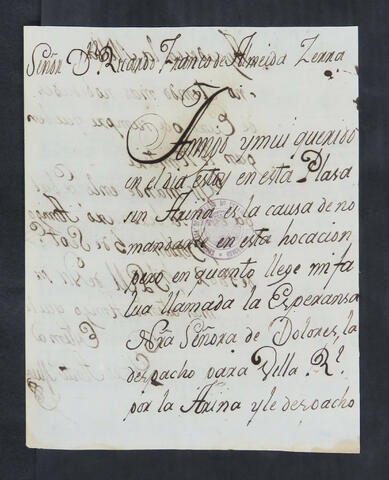 Señor Dn Ricardo Franco de Almeida Zerra
Amigo y mui querido
en el dia estoy en esta Plasa
sin Arina es la causa de no
mandarte en esta hocacion
pero en quanto llege mi fa
lua llamada la Esperansa
Nra Señora de Dolores, la
despacho para Vella Rl
por la Arina y le despacho